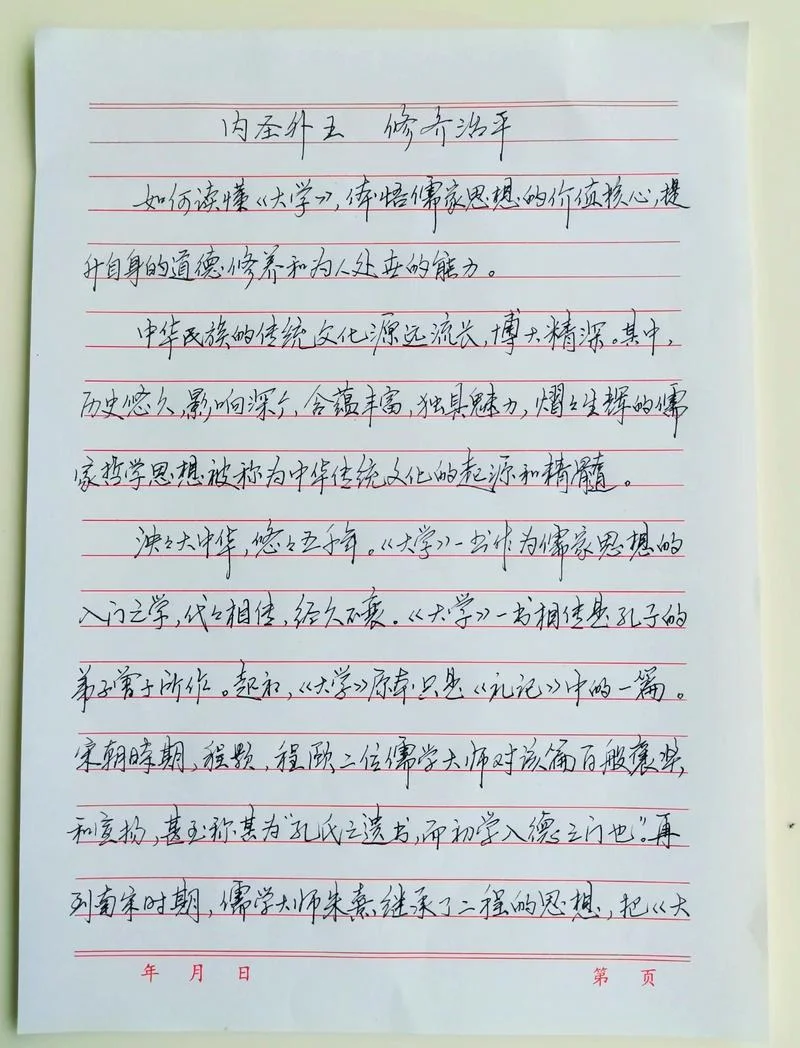 内圣外王 修齐治平
如何读懂《大学》,体悟儒家思想的价值核心,提
升自身的道德修养和为人处世的能力。
中华民族的传统文化源远流长,博大精深。其中,
历史悠久,影响深广,含蕴丰富,独具魅力,熠々生辉的儒
家哲学思想被称为中华传统文化的起源和精髓。
泱々大中华,悠々五千年。《大学》一书作为儒家思想的
入门之学,代々相传,经久不衰。《大学》一书相传是孔子的
弟子曾子所作。起初,《大学》原本只是《礼记》中的一篇。
宋朝时期,程颢,程颐二位儒学大师对该篇百般褒奖
和宣扬,甚至称其为“孔氏之遗书,而初学入德之门也”。再
到南宋时期,儒学大师朱熹继承了二程的思想,把《大
年 月 日
第 页